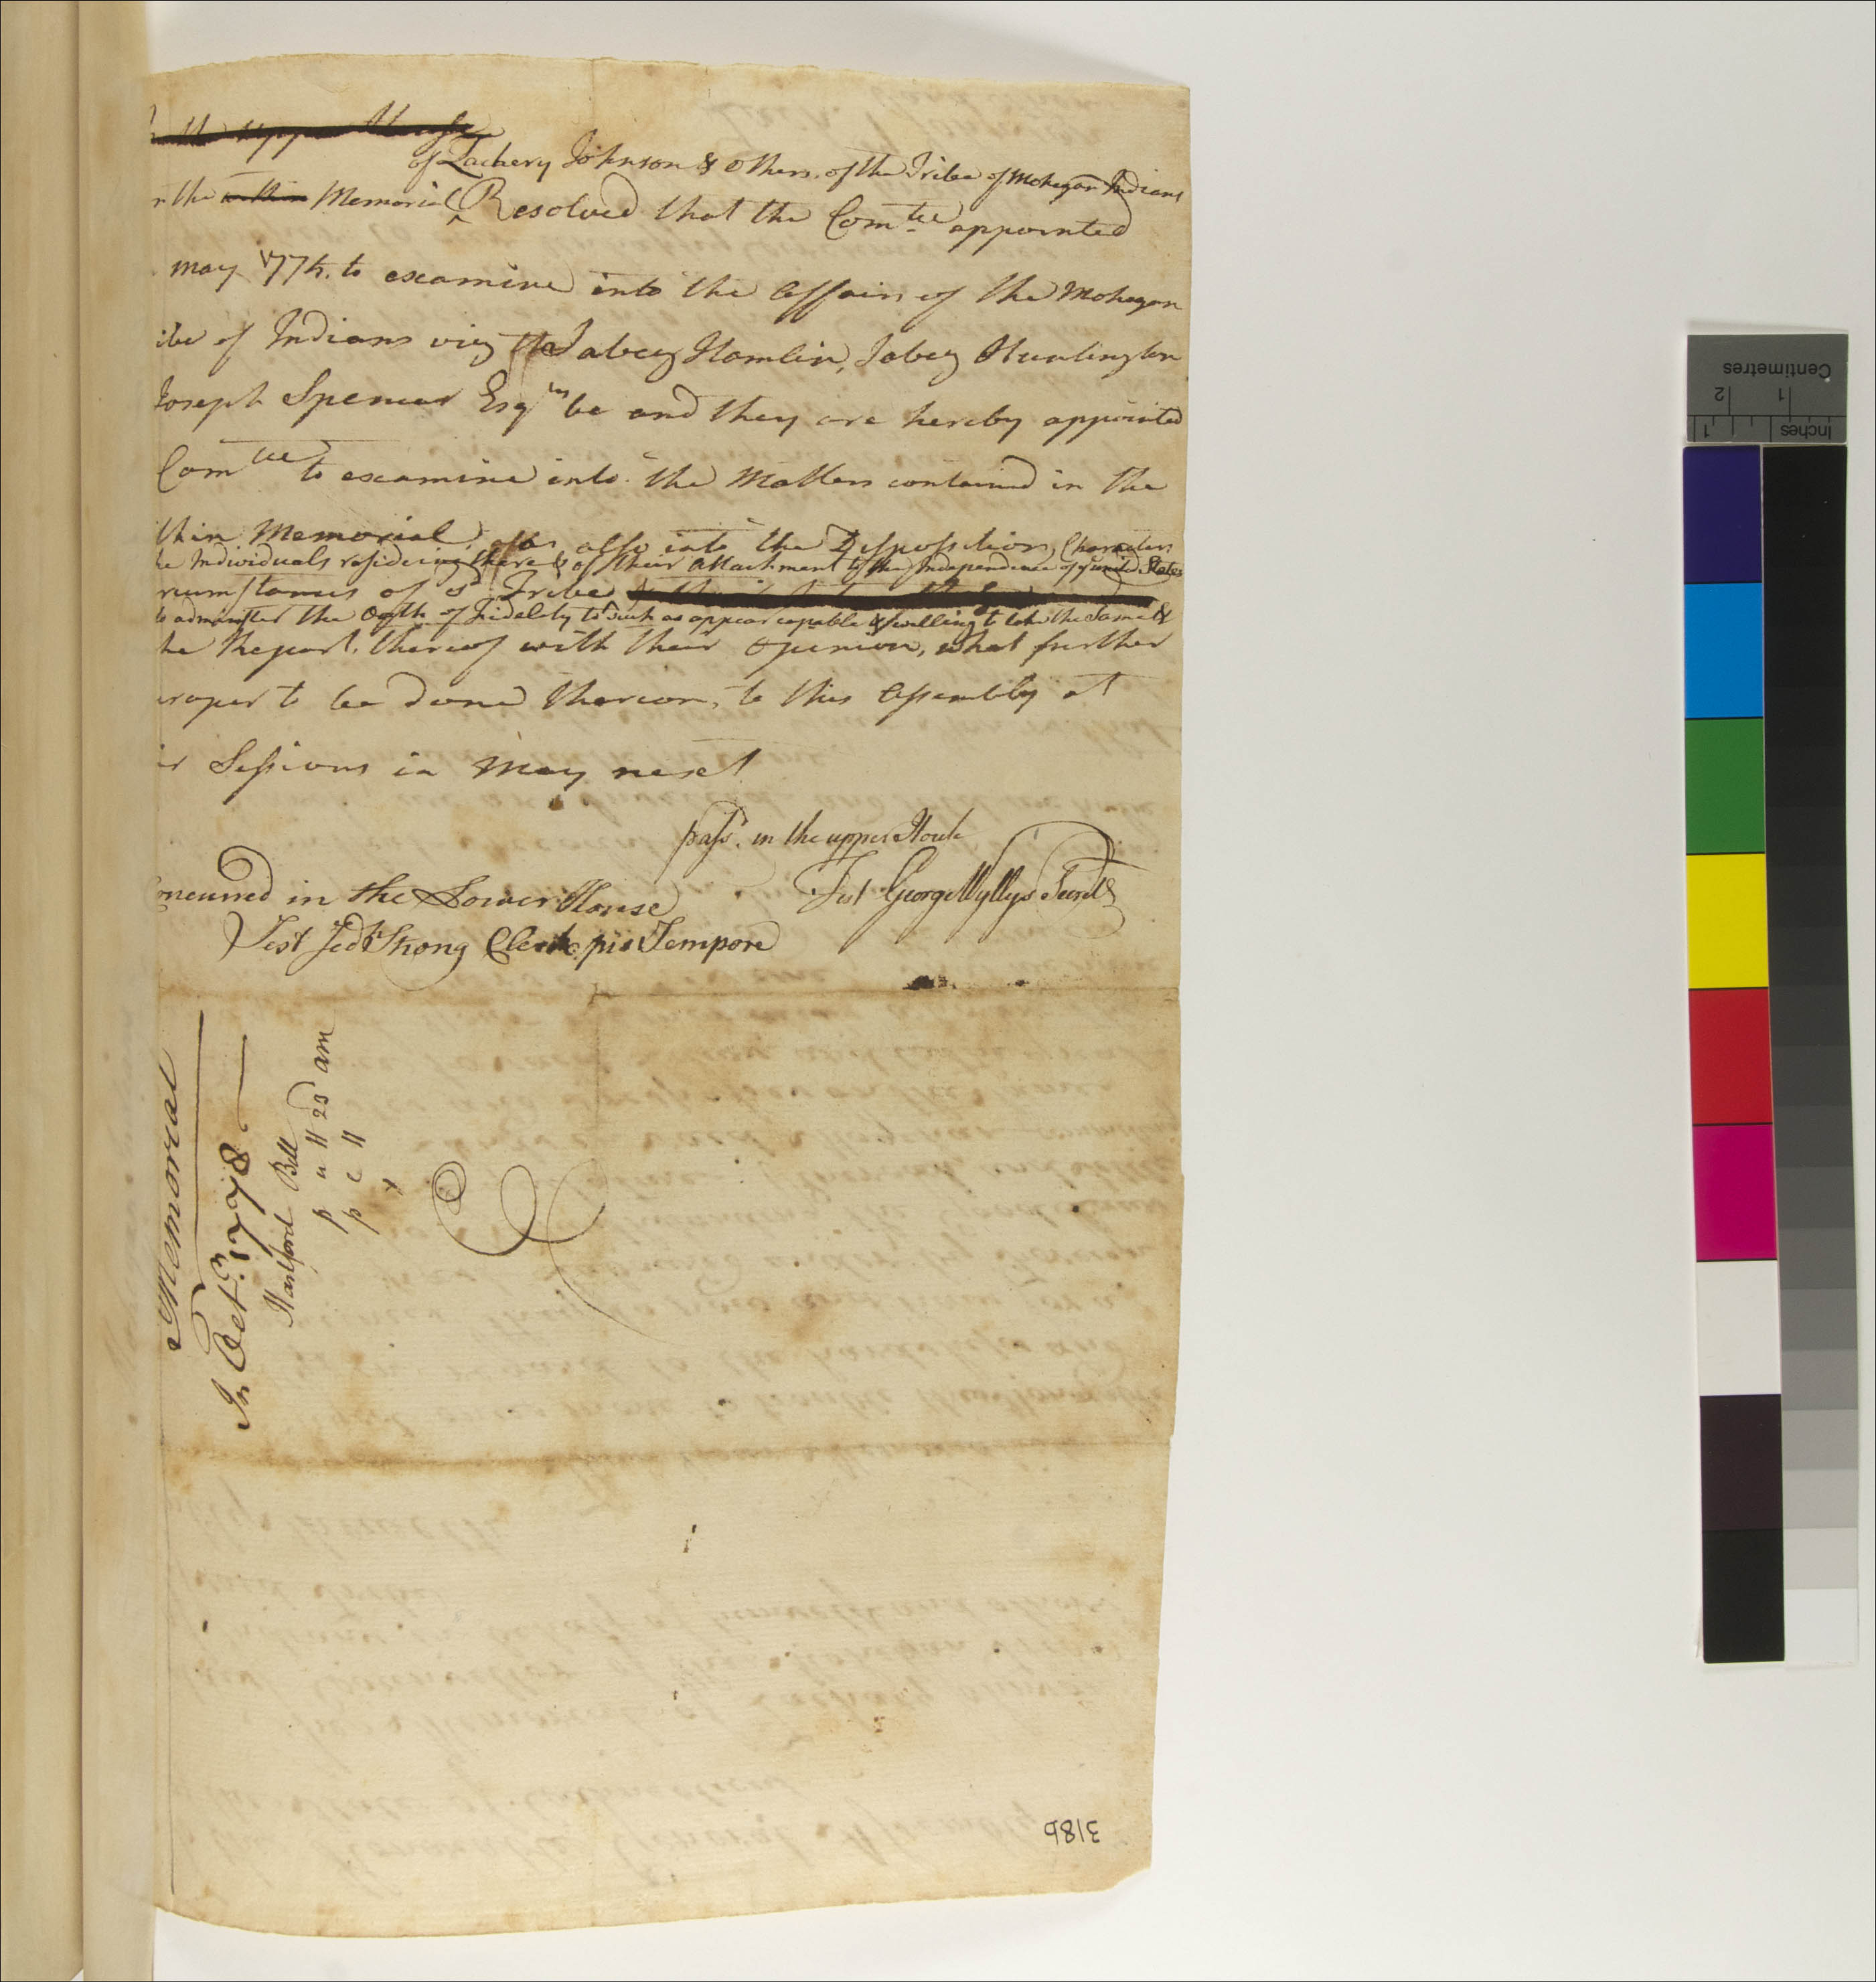 the upper House
of Zachery Johnson & others. of the Tribe of Mohegan Indians
the within Memorial ^ Resolved that the Com.tee appointed
may 1774. to examine into the Affairs of the Mohegan
ibe of Indians viz the Jabez Hamlin, Jabez Huntington
Joseph Spencer Esqrs be and they are hereby appointed
Comtee to examine into the Matters contained in the
thin Memorial, also into the Disposition, Characters
he Individuals residing there & of their attachment to the Independence of ye united States
rcumstances of sd Tribe
to administer the Oath of Fidelity to such as appear capable & willing to take the Same &
ke Report thereof with their Opinion, what further
proper to be done thereon, to this Assembly at
ir Sessions in May next
passd. in the upper House
Test George Wyllys Secret.
oncurred in the Lower House
Test Jedh Strong Clerk pro Tempore
Memorial
In Octr. 1778
Hartford Bill
p u H 23 am
p c H
x
318b
Centimetres
1 2
Inches
1